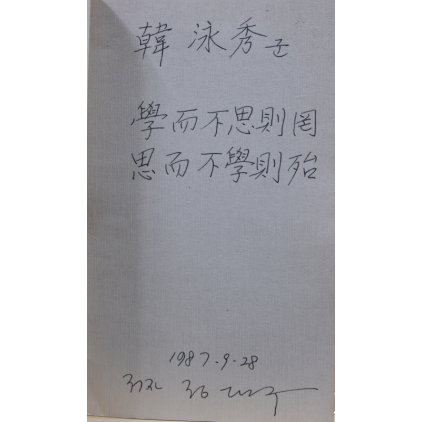 韓 泳 秀 군
學而不思則罔
思而不學則殆
1987.9.28
저자